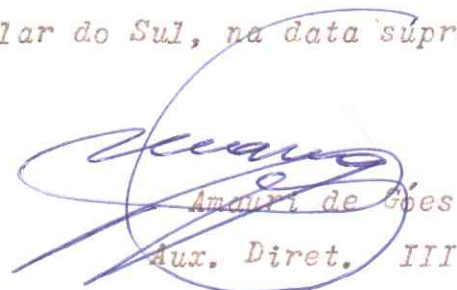 lar do Sul, na data súpr
Amauri de Góes
Aux. Diret. III